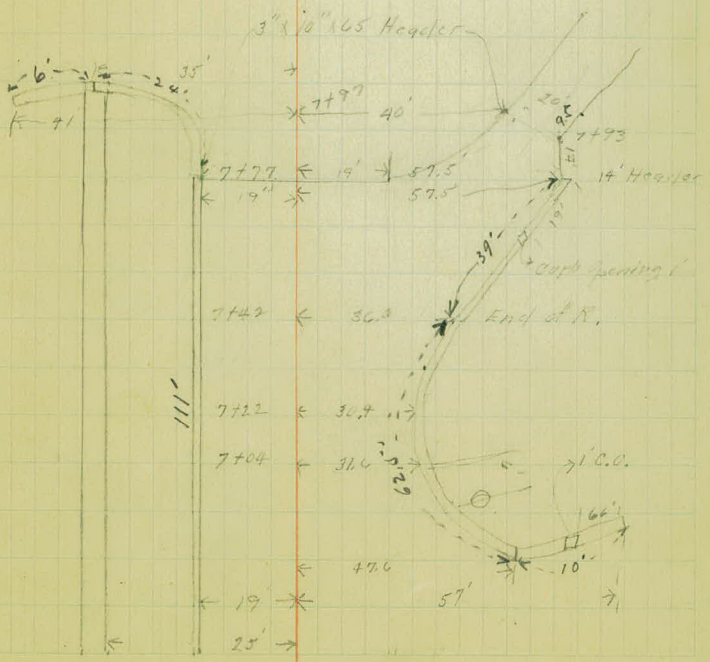 3" x 10" x 65 Header
6' 15 24' 35'
41
7+97 40' 20'
7+93
7+77 19' 57.5'
14' Header
19" 57.5
19'
39'
Curb Opening 1'
7+42 36.3 End of R.
111'
7+22 30.4
7+04 31.6 1' C.O.
62.5'
66'
47.6 10'
19' 57'
25'